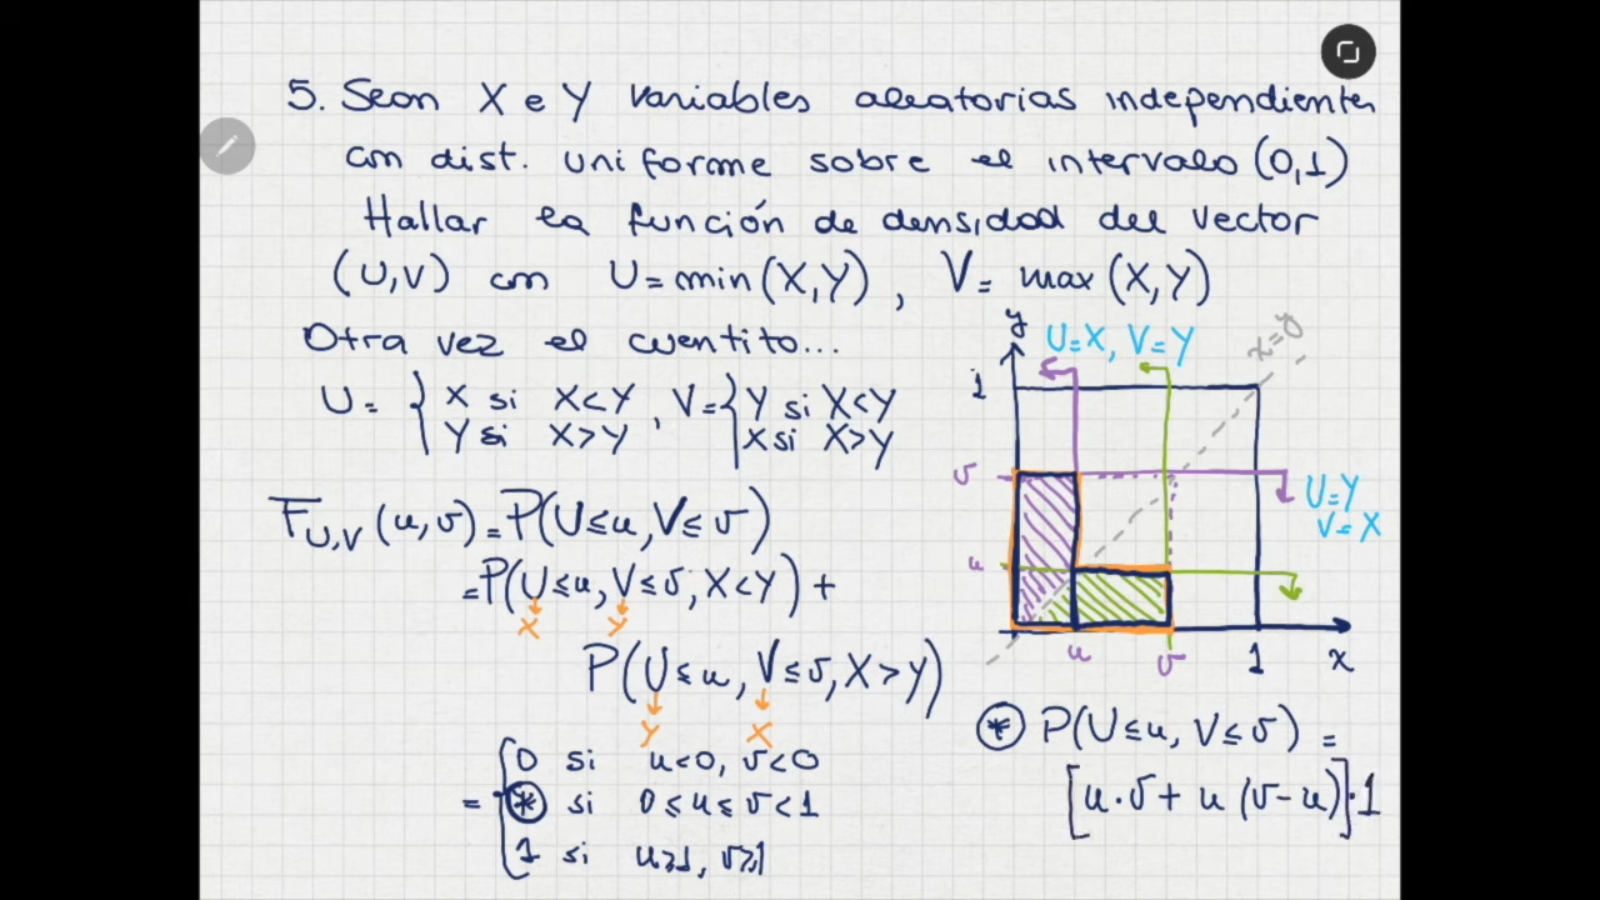 5. Sean X e Y variables aleatorias independientes
con dist. uniforme sobre el intervalo (0,1)
Hallar la función de densidad del vector
(U,V) con U=min(X,Y), V=max(X,Y)
Otra vez el cuentito...
U= { X si X<Y , V= { Y si X<Y
Y si X>Y X si X>Y
F_{U,V}(u,v)=P(U≤u,V≤v)
=P(U≤u,V≤v,X<Y)+
X Y
P(U≤u,V≤v,X>Y)
Y X
= { 0 si u<0, v<0
* si 0≤u≤v<1
1 si u≥1, v≥1
y
U=X, V=Y
x=y
1
v
U=Y
V=X
u
u v 1 x
* P(U≤u, V≤v) =
[u·v+u(v-u)]·1